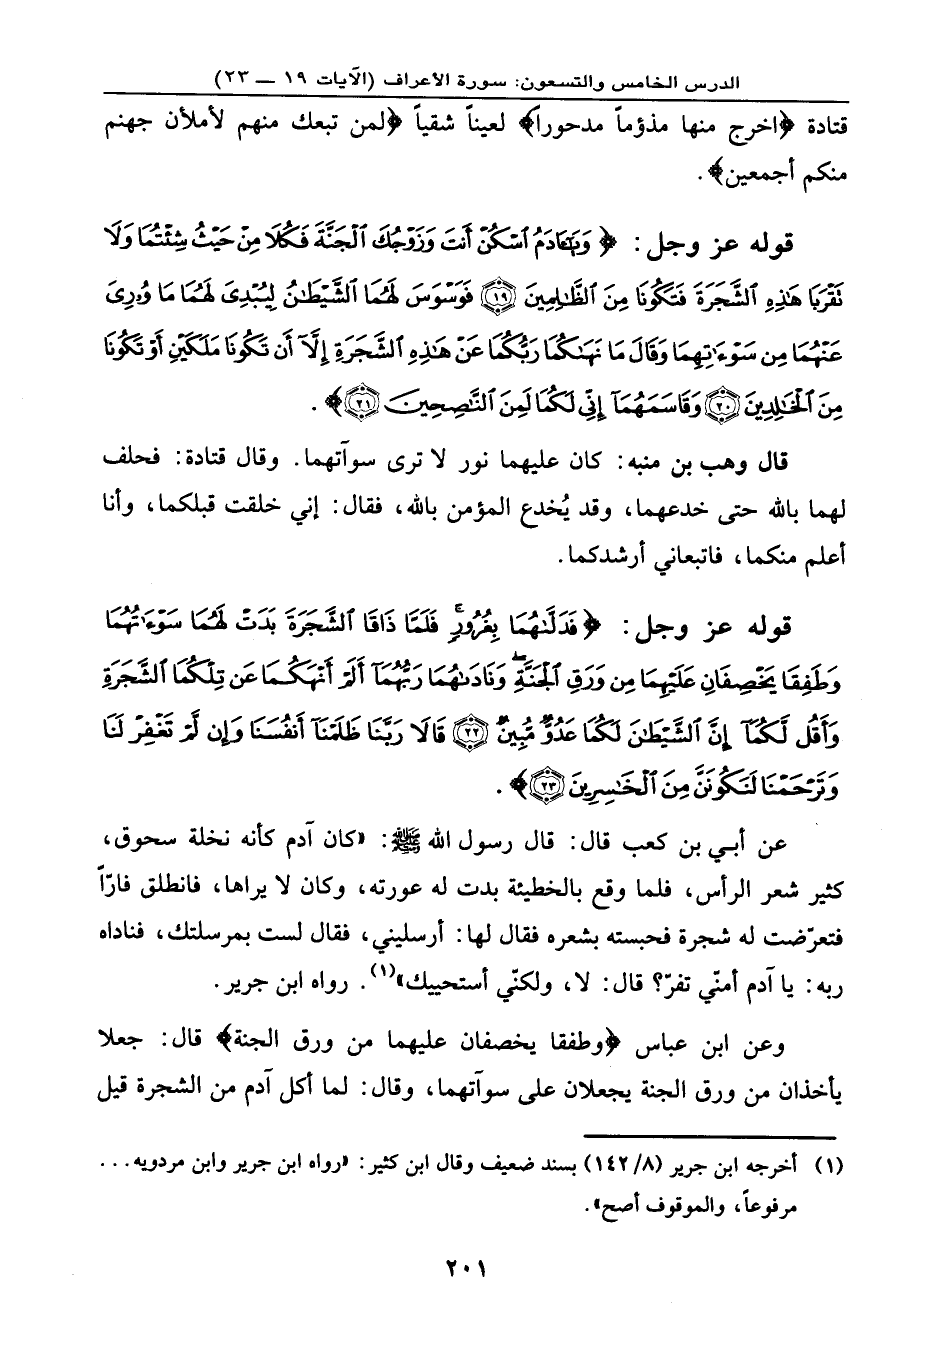 الدرس الخامس والتسعون: سورة الأعراف (الآيات ١٩ — ٢٣)
قتادة ﴿اخرج منها مذؤماً مدحوراً﴾ لعيناً شقياً ﴿لمن تبعك منهم لأملأن جهنم
منكم أجمعين﴾.
قوله عز وجل: ﴿ وَيَٰٓـَٔادَمُ ٱسْكُنْ أَنتَ وَزَوْجُكَ ٱلْجَنَّةَ فَكُلَا مِنْ حَيْثُ شِئْتُمَا وَلَا
تَقْرَبَا هَٰذِهِ ٱلشَّجَرَةَ فَتَكُونَا مِنَ ٱلظَّٰلِمِينَ ١٩ فَوَسْوَسَ لَهُمَا ٱلشَّيْطَٰنُ لِيُبْدِىَ لَهُمَا مَا وُۥرِىَ
عَنْهُمَا مِن سَوْءَٰتِهِمَا وَقَالَ مَا نَهَىٰكُمَا رَبُّكُمَا عَنْ هَٰذِهِ ٱلشَّجَرَةِ إِلَّآ أَن تَكُونَا مَلَكَيْنِ أَوْ تَكُونَا
مِنَ ٱلْخَٰلِدِينَ ٢٠ وَقَاسَمَهُمَآ إِنِّى لَكُمَا لَمِنَ ٱلنَّٰصِحِينَ ٢١ ﴾.
قال وهب بن منبه: كان عليهما نور لا ترى سوآتهما. وقال قتادة: فحلف
لهما بالله حتى خدعهما، وقد يُخدع المؤمن بالله، فقال: إني خلقت قبلكما، وأنا
أعلم منكما، فاتبعاني أرشدكما.
قوله عز وجل: ﴿ فَدَلَّىٰهُمَا بِغُرُورٍ ۚ فَلَمَّا ذَاقَا ٱلشَّجَرَةَ بَدَتْ لَهُمَا سَوْءَٰتُهُمَا
وَطَفِقَا يَخْصِفَانِ عَلَيْهِمَا مِن وَرَقِ ٱلْجَنَّةِ ۖ وَنَادَىٰهُمَا رَبُّهُمَآ أَلَمْ أَنْهَكُمَا عَن تِلْكُمَا ٱلشَّجَرَةِ
وَأَقُل لَّكُمَآ إِنَّ ٱلشَّيْطَٰنَ لَكُمَا عَدُوٌّ مُّبِينٌ ٢٢ قَالَا رَبَّنَا ظَلَمْنَآ أَنفُسَنَا وَإِن لَّمْ تَغْفِرْ لَنَا
وَتَرْحَمْنَا لَنَكُونَنَّ مِنَ ٱلْخَٰسِرِينَ ٢٣ ﴾.
عن أبي بن كعب قال: قال رسول الله ﷺ: «كان آدم كأنه نخلة سحوق،
كثير شعر الرأس، فلما وقع بالخطيئة بدت له عورته، وكان لا يراها، فانطلق فارّاً
فتعرّضت له شجرة فحبسته بشعره فقال لها: أرسليني، فقال لست بمرسلتك، فناداه
ربه: يا آدم أمنّي تفرّ؟ قال: لا، ولكنّي أستحييك»(١). رواه ابن جرير.
وعن ابن عباس ﴿وطفقا يخصفان عليهما من ورق الجنة﴾ قال: جعلا
يأخذان من ورق الجنة يجعلان على سوآتهما، وقال: لما أكل آدم من الشجرة قيل
(١) أخرجه ابن جرير (٨/ ١٤٢) بسند ضعيف وقال ابن كثير: «رواه ابن جرير وابن مردويه...
مرفوعاً، والموقوف أصح».
٢٠١